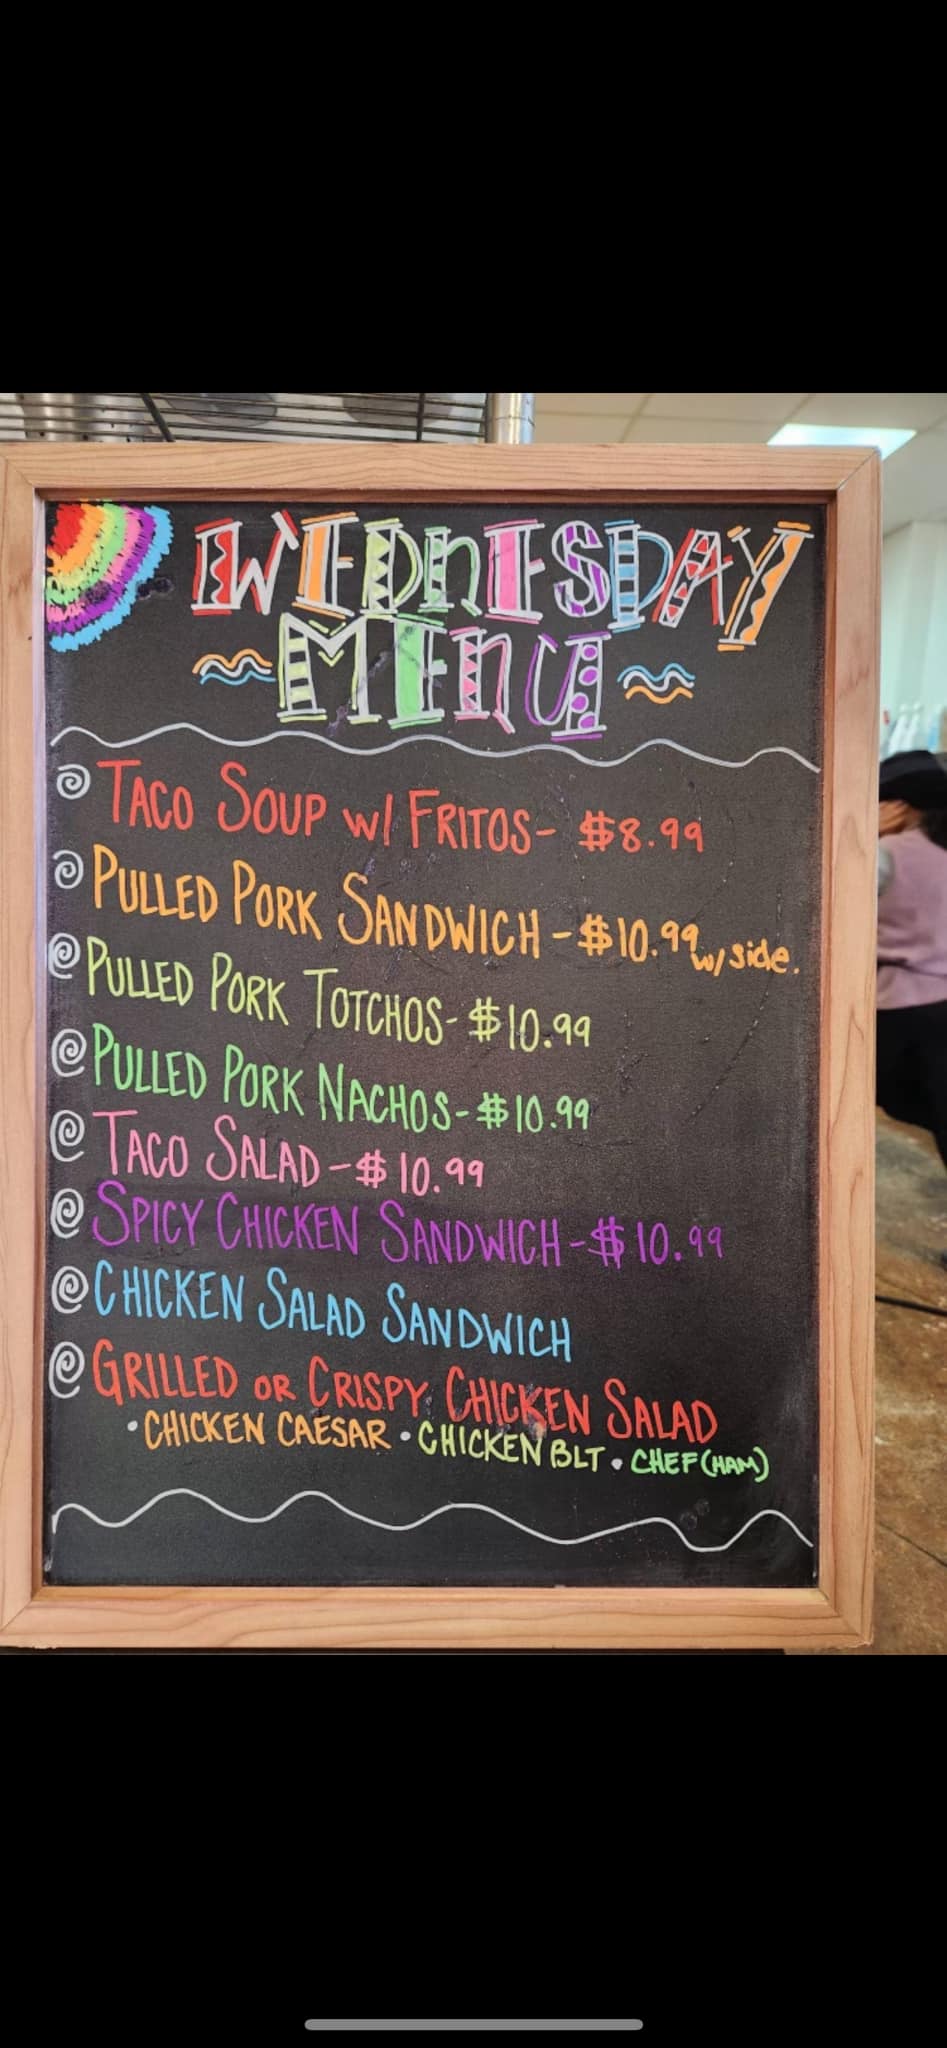 WEDNESDAY
MENU
TACO SOUP W/ FRITOS- $8.99
PULLED PORK SANDWICH - $10.99 w/ side.
PULLED PORK TOTCHOS- $10.99
PULLED PORK NACHOS- $10.99
TACO SALAD - $10.99
SPICY CHICKEN SANDWICH - $10.99
CHICKEN SALAD SANDWICH
GRILLED OR CRISPY CHICKEN SALAD
• CHICKEN CAESAR • CHICKEN BLT • CHEF (HAM)